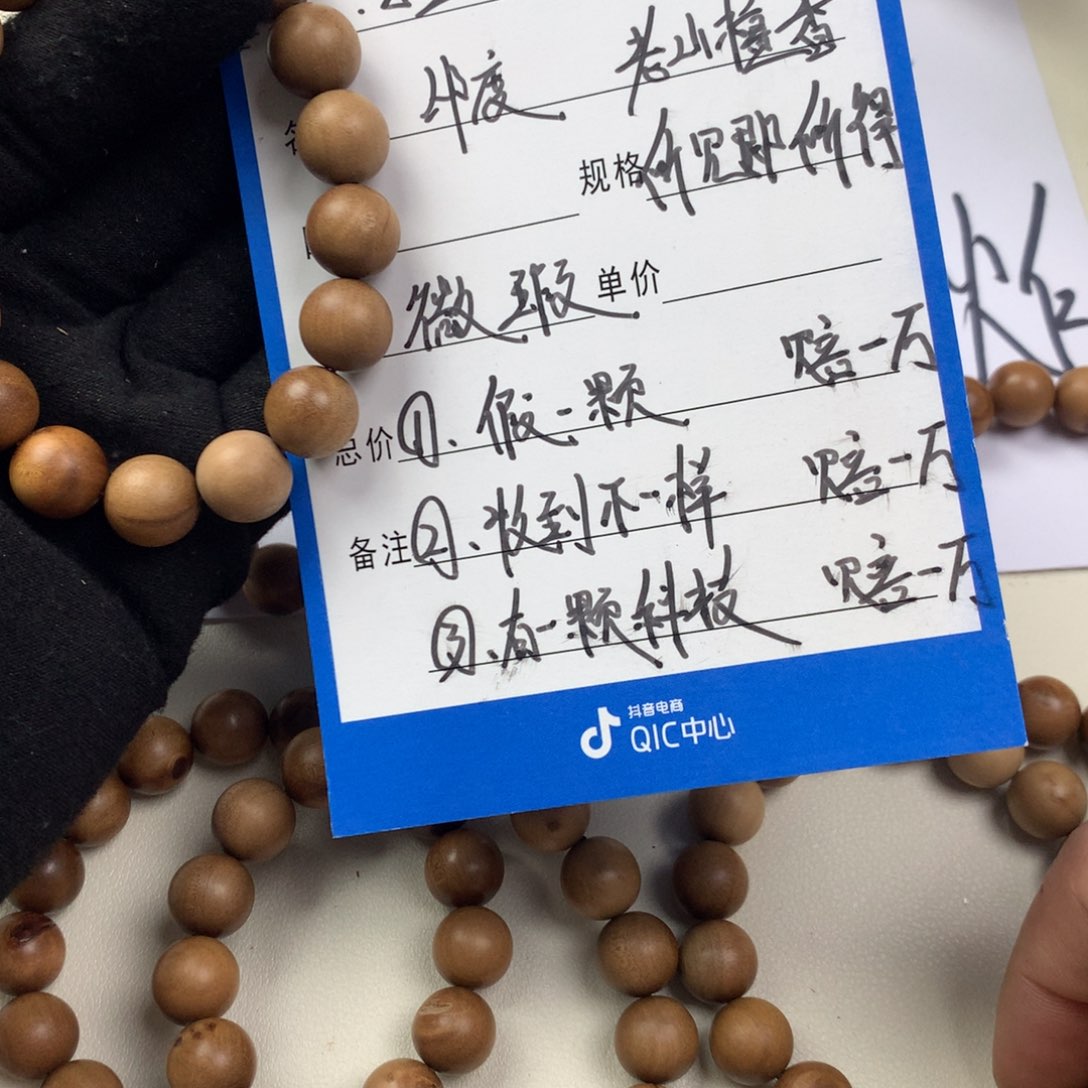 印度 老山檀香
规格 所见即所得
微瑕 单价
总价 ①. 假一颗 赔一万
备注 ②. 收到不一样 赔一万
③. 有一颗科技 赔一万
抖音电商
QIC中心